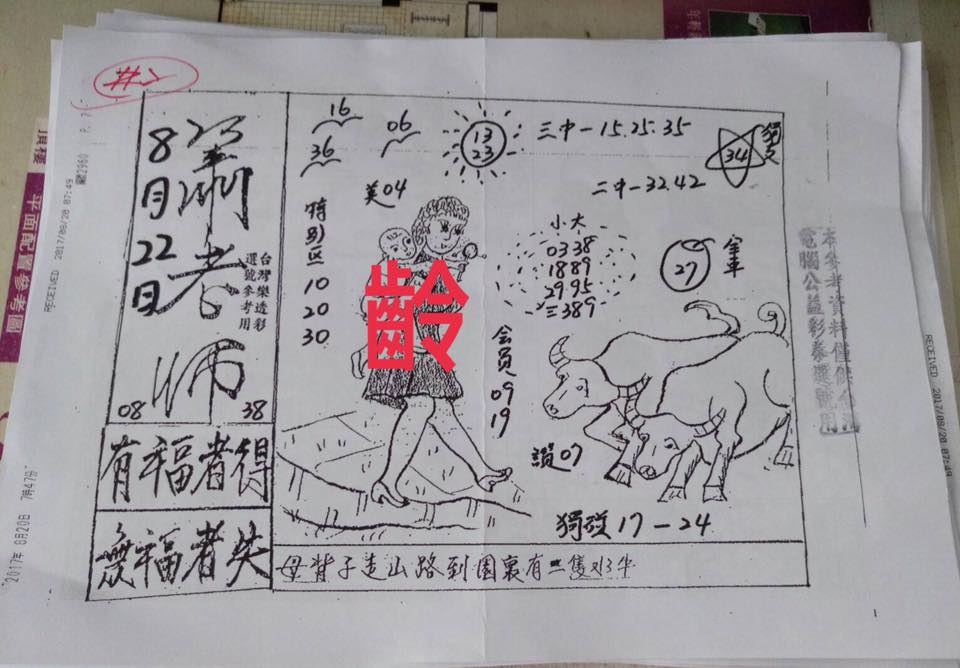 8月22日
老师
台灣樂透彩
選號參考用
08 38
有福者得
無福者失
16
36
06
13
23
三中一15.25.35
獨支
34
二中一32.42
美04
特別区
10
20
30
小大
0338
1889
2995
三389
27
会员
09
19
獨碰17-24
母背子走山路到園裏有二隻
齡
本參考資料僅供台灣
電腦公益彩券選號用
平面配置參考圖
RECEIVED 2017/08/20 07:49
RECEIVED 2017/08/20 07:49
2017年 8月20日 7時47分
1